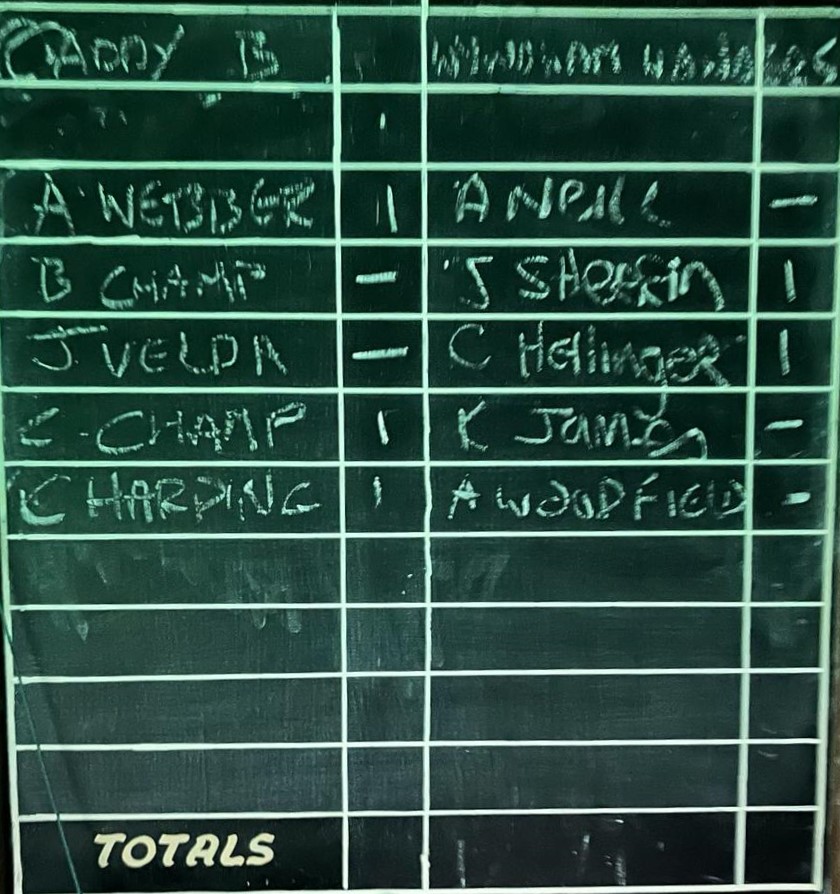 CADDY B WINDHAM WANDERERS
A WEBBER 1 A NEILL -
B CHAMP - J SHEFFIN 1
J VELDA - C Hellinger 1
C CHAMP 1 K James -
K HARDING 1 A WOODFIELD -
TOTALS